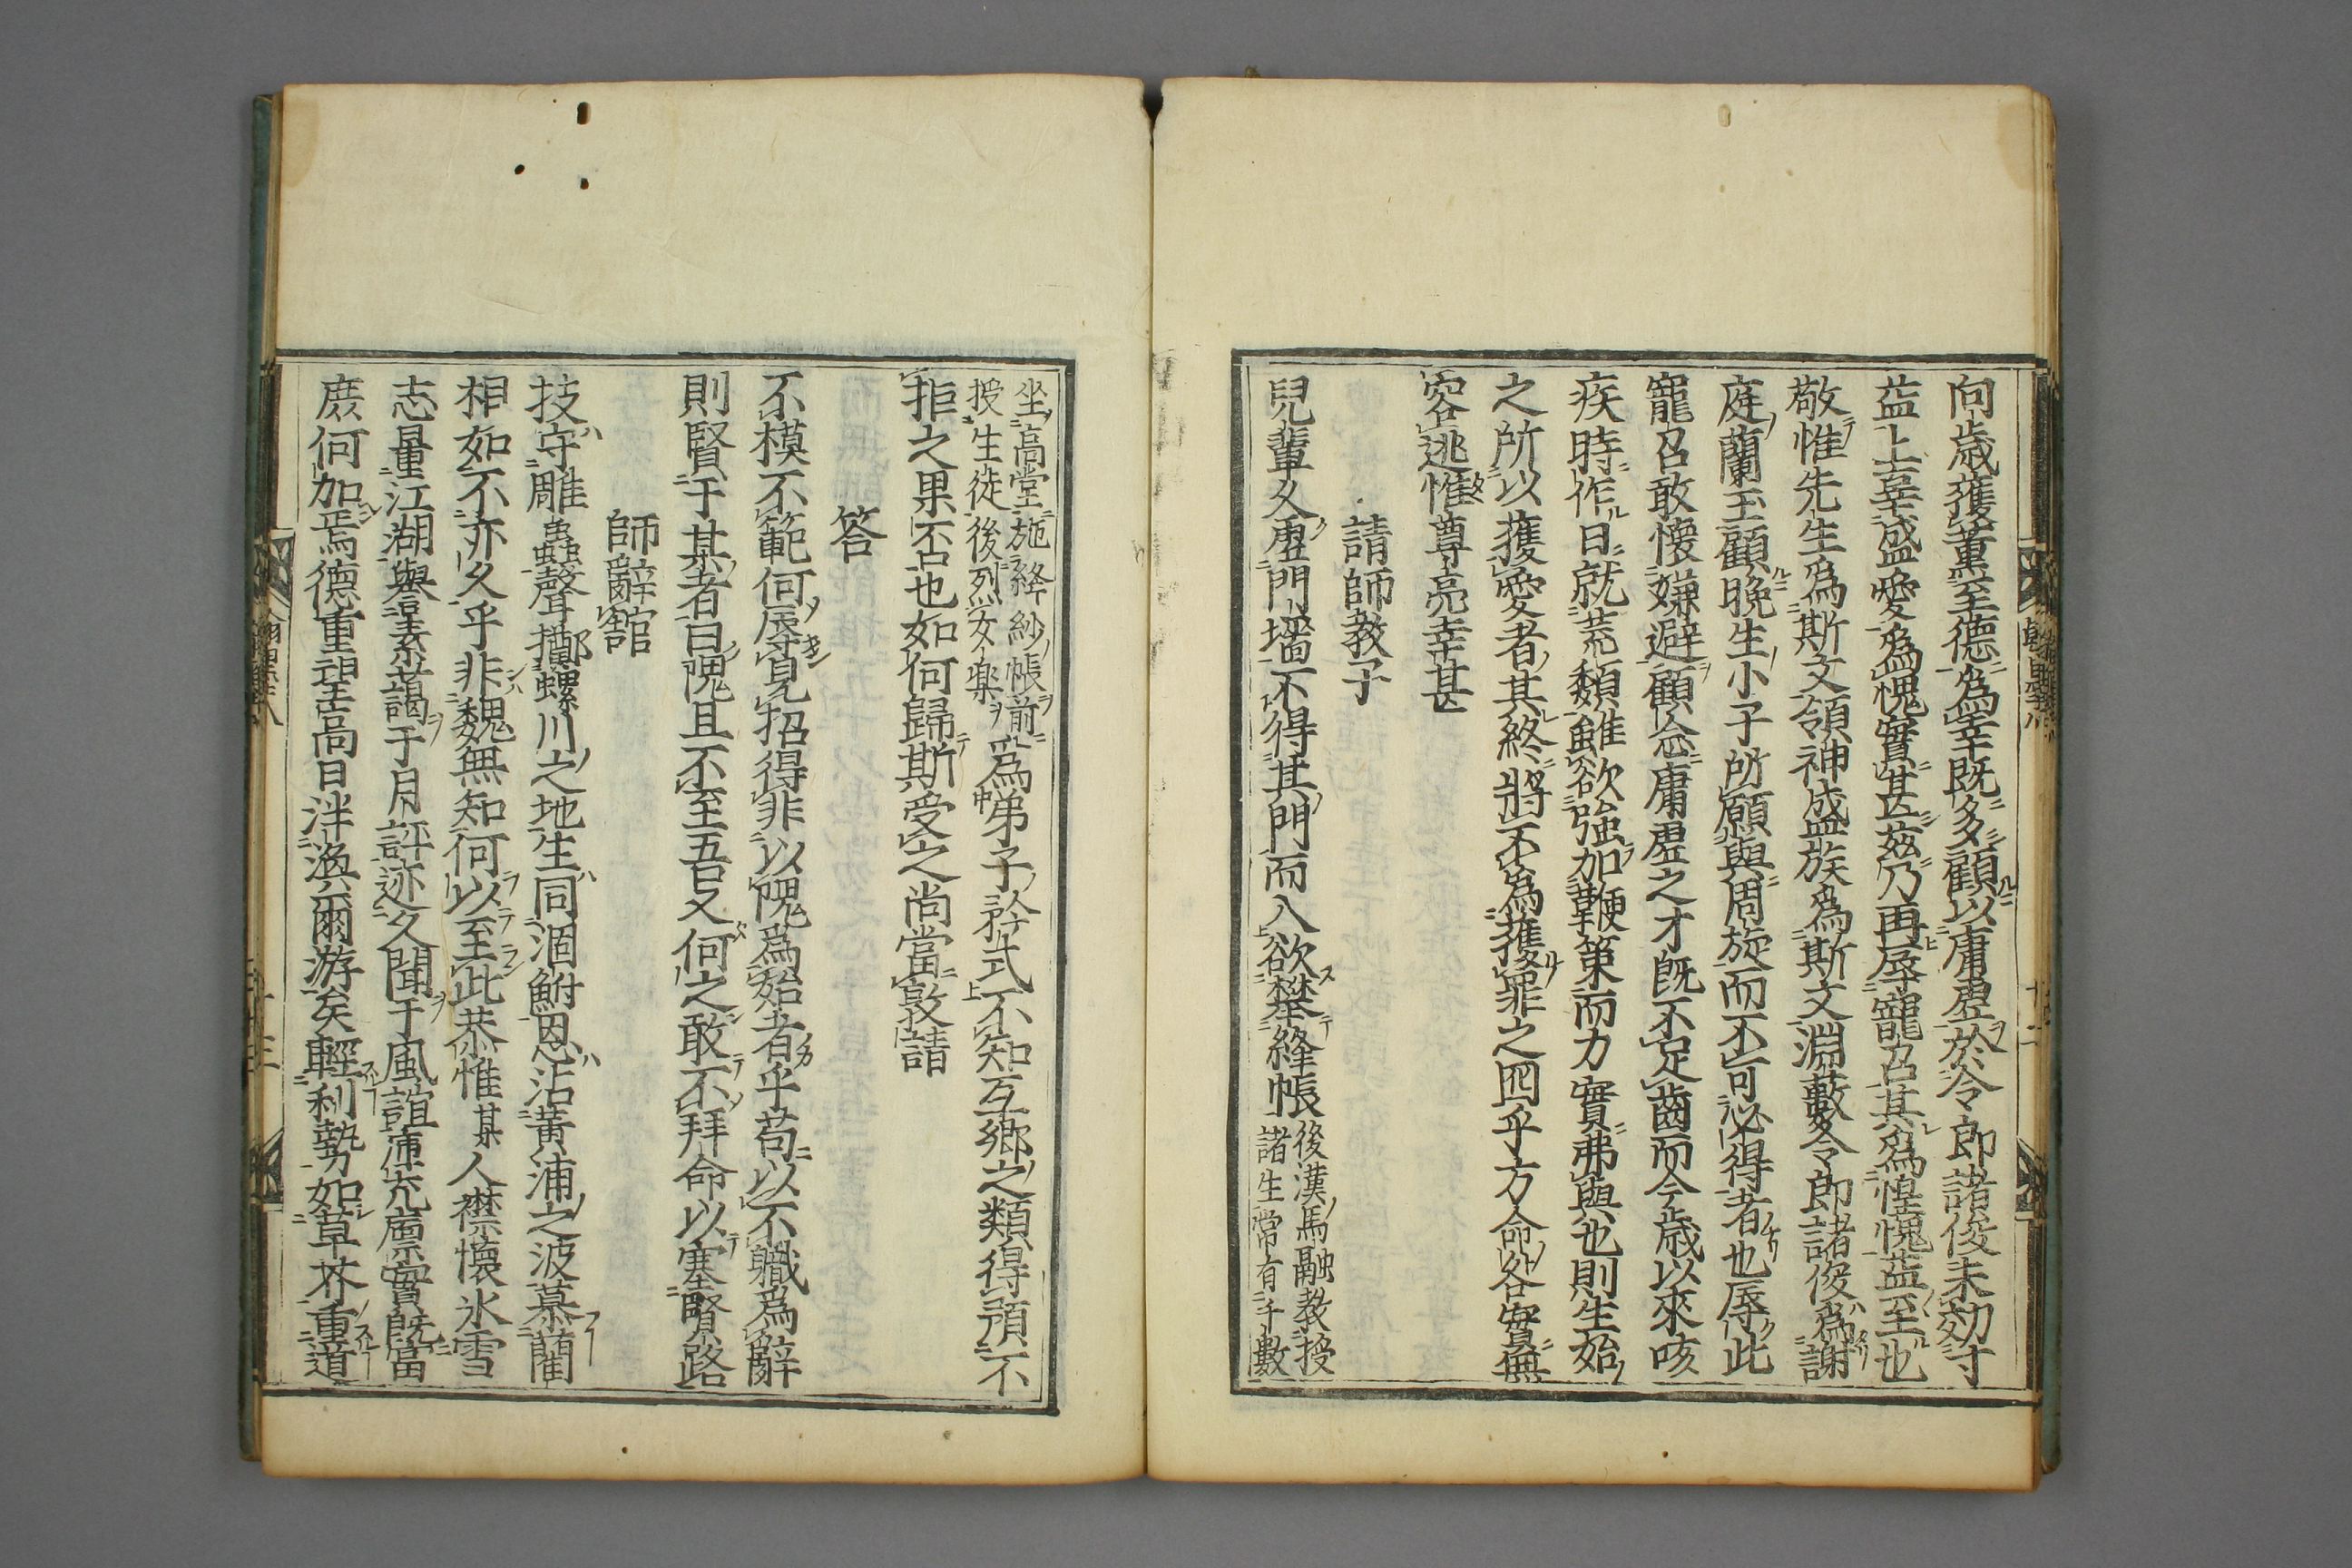 向歳獲薫至德爲幸既多顧以庸虚於令郎諸俊未効寸
益上辜盛愛爲愧實甚茲乃再辱寵召其爲惶愧益至也
敬惟先生爲斯文領神盛族爲斯文淵藪令郎諸俊爲謝
庭蘭玉顧晩生小子所願與周旋而不可必得者也辱此
寵召敢懷嫌避顧念庸虚之才既不足齒而今歳以來咳
疾時作日就荒頽雖欲強加鞭策而力實弗與也則生始
之所以獲愛者其終將不爲獲罪之罔乎方命各實無
容逃惟尊亮幸甚
請師教子
兒輩久虚門墻不得其門而入欲攀絳帳
後漢馬融教授
諸生常有千數
坐高堂施絳紗帳前
授生徒後列女樂
爲弟子矜式不知互鄉之類得預不
拒之果否也如何歸斯受之尚當敦請
答
不模不範何辱見招得非以隗爲始者乎苟以不職爲辭
則賢于某者曰隗且不至吾又何之敢不拜命以塞賢路
師辭舘
技守雕蟲聲擲螺川之地生同涸鮒恩沾黃浦之波慕藺
相如不亦久乎非魏無知何以至此恭惟某人襟懷氷雪
志量江湖輿素藹于月評迹久聞于風誼庫充廩實既富
庶何加焉德重望高曰泮渙爾游矣輕利勢如草芥重道